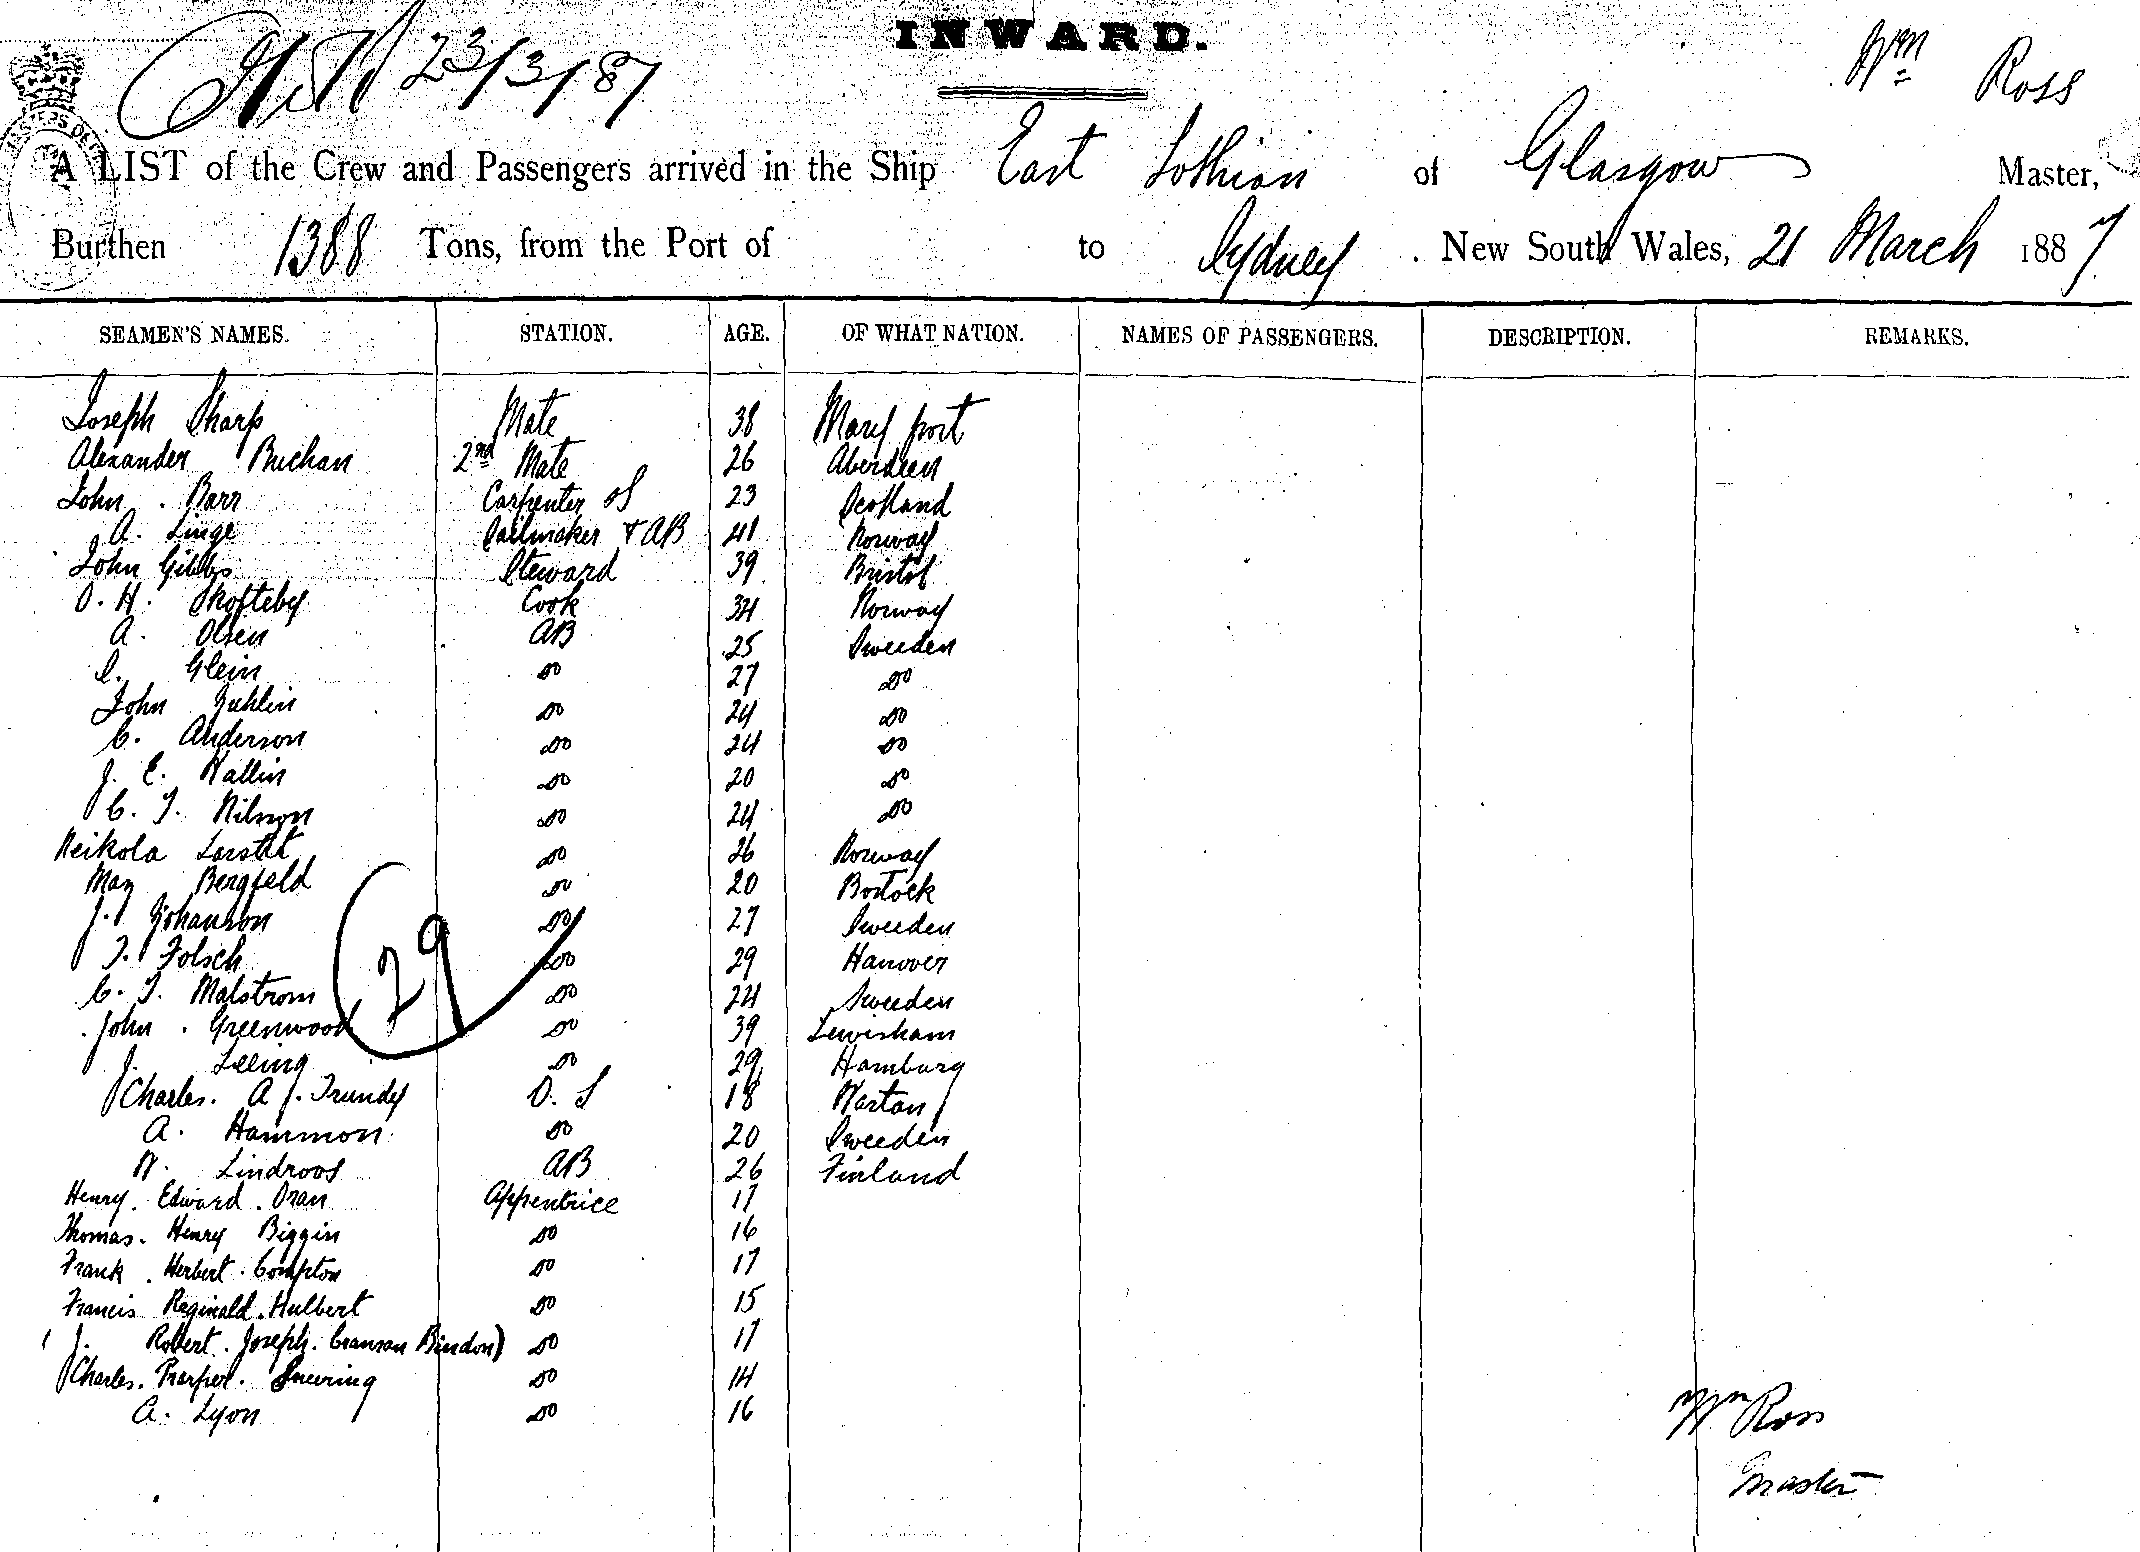 INWARD.
23/3/87
Wm Ross
A LIST of the Crew and Passengers arrived in the Ship East Lothian of Glasgow Master,
Burthen 1388 Tons, from the Port of to Sydney . New South Wales, 21 March 1887
SEAMEN'S NAMES. STATION. AGE. OF WHAT NATION. NAMES OF PASSENGERS. DESCRIPTION. REMARKS.
Joseph Sharp Mate 38 Mary port
Alexander Buchan 2nd Mate 26 Aberdeen
John Barr Carpenter 23 Scotland
A. Linge Sailmaker & AB 41 Norway
John Gibbs Steward 39 Bristol
O. H. Skofteby Cook 34 Norway
A. Olsen AB 25 Sweeden
Glein do 27 do
John do 24 do
C. Anderson do 24 do
J. E. Wallin do 20 do
C. J. Nilsson do 24 do
Neikola do 26 Norway
Max Bergfeld do 20 Rostock
J. Johanson do 27 Sweeden
J. Folsch do 29 Hanover
C. J. Malstrom do 24 Sweeden
John Greenwood do 39 Lewisham
J. Leeing do 29 Hamburg
Charles. A J. Trundy O. S 18
A. Hammon do 20 Sweeden
W. Lindroos AB 26 Finland
Henry. Edward. Oran Apprentice 17
Thomas. Henry Biggin do 16
Frank. Herbert. Compton do 17
Francis Reginald. Hulbert do 15
( J. Robert. Joseph. Cranson Bindon) do 17
Charles. do 14
A. Lyon do 16
29
Wm Ross
Master